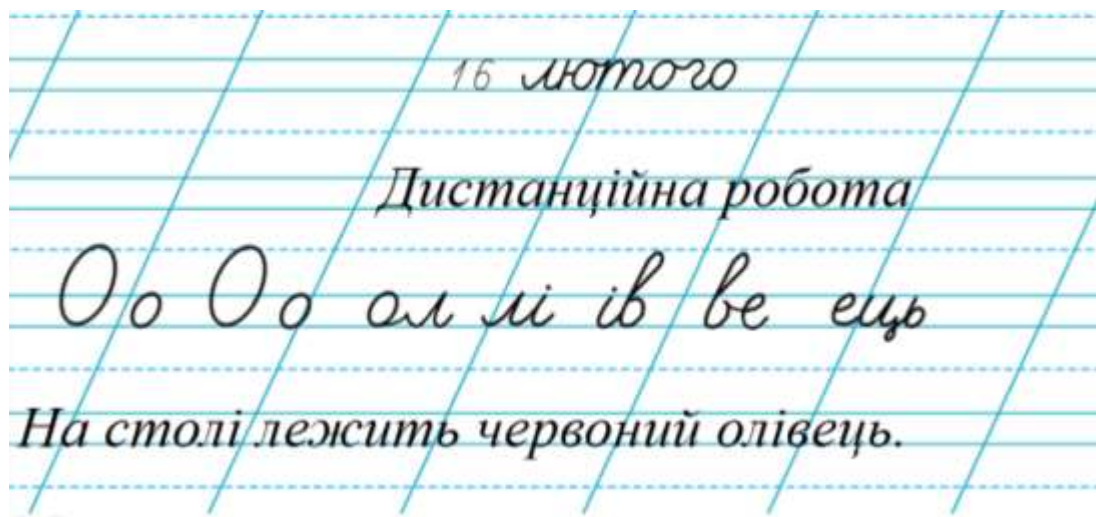 16 лютого
Дистанційна робота
Оо Оо ол лі ів ве ець
На столі лежить червоний олівець.